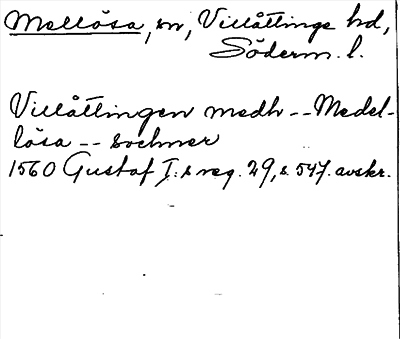 Mellösa, sn, Villåttinge hd,
Söderm. l.
Villåttingen medh -- Medel-
lösa -- sochner
1560 Gustaf I:s reg. 29, s. 547. avskr.